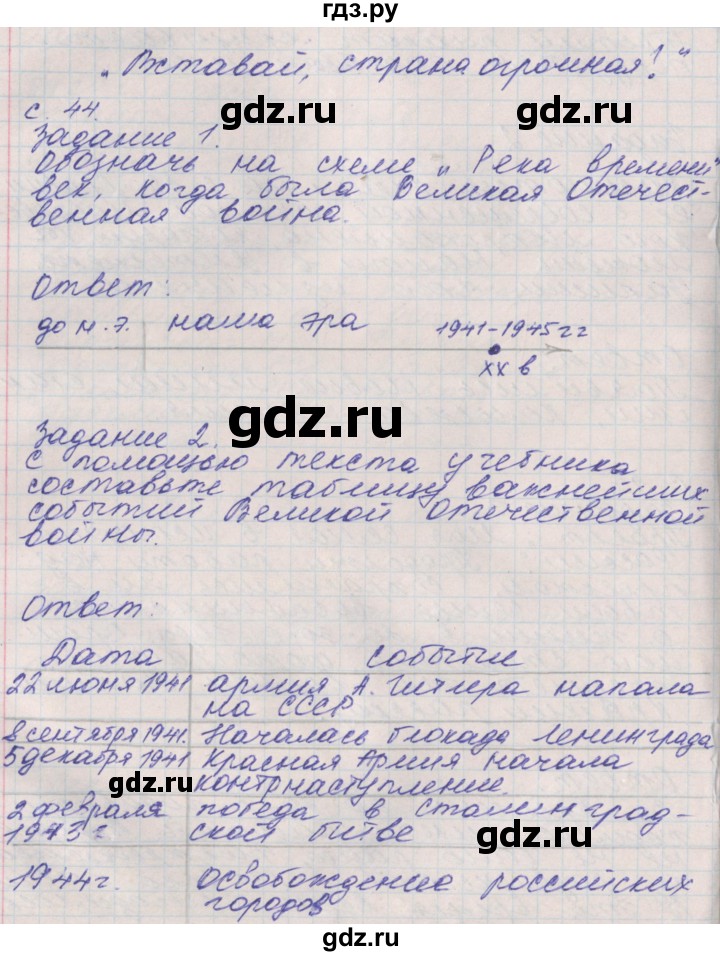 гдз.ру
„Вставай, страна огромная!"
с. 44.
gdz.ru gdz.ru
Задание 1.
Обозначь на схеме „Река времени"
век, когда была Великая Отечест-
венная война.
Ответ:
до н.э. наша эра 1941-1945гг
XX в
gdz.ru
Задание 2.
С помощью текста учебника
составьте таблицу важнейших
событий Великой Отечественной
войны.
gdz.ru
Ответ:
Дата событие
22 июня 1941 армия А. Гитлера напала
на СССР
8 сентября 1941. Началась блокада Ленинграда
5 декабря 1941 Красная Армия начала
контрнаступление.
gdz.ru
2 февраля победа в сталинград-
1943г ской битве
gdz.ru
1944г. освобождение российских
городов
gdz.ru